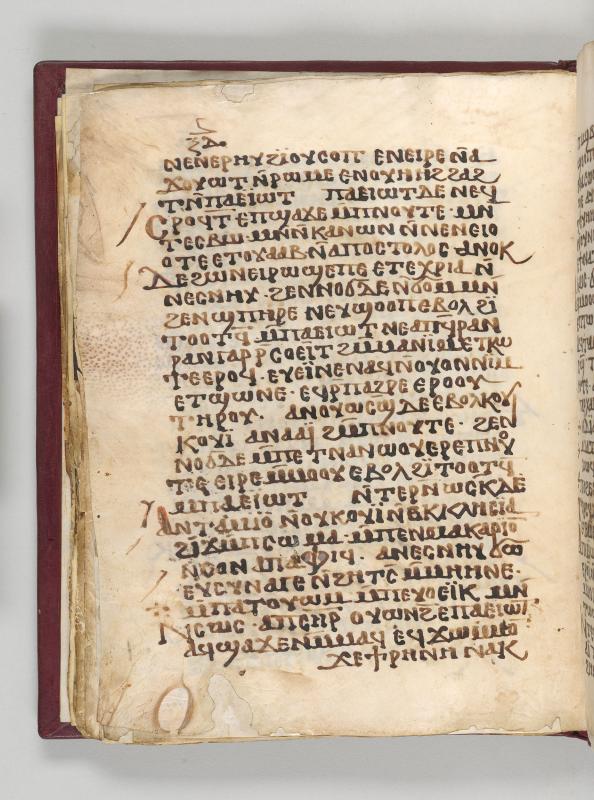 ⲝⲇ
ⲛⲉⲛⲉⲣⲏⲩ ϩⲓ̈ⲟⲩⲥⲟⲡ ⲉⲛⲉⲓⲣⲉ ⲛ̄ⲁ
ϫⲟⲩⲱⲧ ⲛ̄ⲣⲱⲙⲉ ⲉⲛⲟⲩⲏϩ ϩⲁϩ
ⲧⲙ̄ⲡⲁⲉⲓⲱⲧ ⲡⲁⲉⲓⲱⲧ ⲇⲉ ⲛⲉϥ
ⲥⲣⲟϥⲧ ⲉⲡϣⲁϫⲉ ⲙ̄ⲡⲛⲟⲩⲧⲉ ⲙⲛ̄
ⲧⲉⲥⲃⲱ ⲙⲛ̄ⲛ̄ⲕⲁⲛⲱⲛ ⲛ̄ⲛⲉⲛⲉⲓⲟ
ⲟⲧⲉ ⲉⲧⲟⲩⲁⲁⲃ ⲛ̄ⲁⲡⲟⲥⲧⲟⲗⲟⲥ· ⲁⲛⲟⲕ
ⲇⲉ ϩⲱ ⲛⲉⲓⲣⲱϣⲉ ⲡⲉ ⲉⲧⲉⲭⲣⲓⲁ ⲛ̄
ⲛⲉⲥⲛⲏⲩ· ϩⲉⲛⲛⲟϭ ⲇⲉ ⲛ̄ϭⲟⲙ ⲙⲛ̄
ϩⲉⲛϣⲡⲏⲣⲉ ⲛⲉⲩϣⲟⲟⲡ ⲉⲃⲟⲗ ϩⲓ̈
ⲧⲟⲟⲧϥ ⲙ̄ⲡⲁⲉⲓⲱⲧ ⲛⲉⲁⲡϥ̄ⲣⲁⲛ
ⲣⲁⲛ ⲅⲁⲣ ⲣ̄ⲥⲟⲉⲓⲧ ϩⲙ̄ⲙⲁ ⲛⲓⲙ ⲉⲧⲕⲱ
ⲧⲉ ⲉⲣⲟϥ· ⲉⲩⲉⲓ̈ⲛⲉ ⲛⲁϥ ⲛ̄ⲟⲩⲟⲛ ⲛⲓⲙ
ⲉⲧϣⲱⲛⲉ· ⲉϥⲣ̄ⲡⲁϩⲣⲉ ⲉⲣⲟⲟⲩ
ⲧⲏⲣⲟⲩ· ⲁⲛⲟⲩⲱϩ ⲇⲉ ⲉⲃⲟⲗ ⲕⲟⲩ
ⲕⲟⲩⲓ̈ ⲁⲛⲁⲁⲓ̈ ϩⲙ̄ⲡⲛⲟⲩⲧⲉ· ϩⲉⲛ
ⲛⲟϭ ⲇⲉ ⲙ̄ⲡⲉⲧⲛⲁⲛⲟⲩⲟⲩ ⲉⲣⲉⲡⲛⲟⲩ
ⲧⲉ ⲉⲓⲣⲉ ⲙ̄ⲙⲟⲟⲩ ⲉⲃⲟⲗ ϩⲓ̈ⲧⲟⲟⲧϥ
ⲙ̄ⲡⲁⲉⲓⲱⲧ ⲛ̄ⲧⲉⲣⲛ̄ⲱⲥⲕ ⲇⲉ
ⲁⲛⲧⲁⲙⲓⲟ ⲛ̄ⲟⲩⲕⲟⲩⲓ ⲛ̄ⲉⲕⲕⲗⲏⲥⲓⲁ
ϩⲓ̈ϫⲙ̄ⲡⲥⲱⲙⲁ ⲙ̄ⲡⲉⲛⲙⲁⲕⲁⲣⲓⲟⲥ
ⲛ̄ⲥⲟⲛ ⲁⲡⲁ ⲫⲓϥ. ⲁⲛⲉⲥⲛⲏⲩ ϭⲱ
ⲉⲩⲥⲩⲛⲁⲅⲉ ⲛ̄ϩⲏⲧⲥ̄ ⲙ̄ⲙⲏⲛⲉ·
ⲙ̄ⲡⲁⲧⲟⲩⲱⲙ ⲙ̄ⲡⲉⲩⲟⲉⲓ̈ⲕ ⲙⲛ̄
ⲛ̄ⲥⲱⲥ· ⲁⲡⲥⲏⲣ ⲟⲩⲱⲛϩ ⲉⲡⲁⲉⲓⲱⲧ
ⲁϥϣⲁϫⲉ ⲛⲙ̄ⲙⲁϥ ⲉϥϫⲱ ⲙ̄ⲙⲟⲥ
ϫⲉ ϯⲣⲏⲛⲏ ⲛⲁⲕ